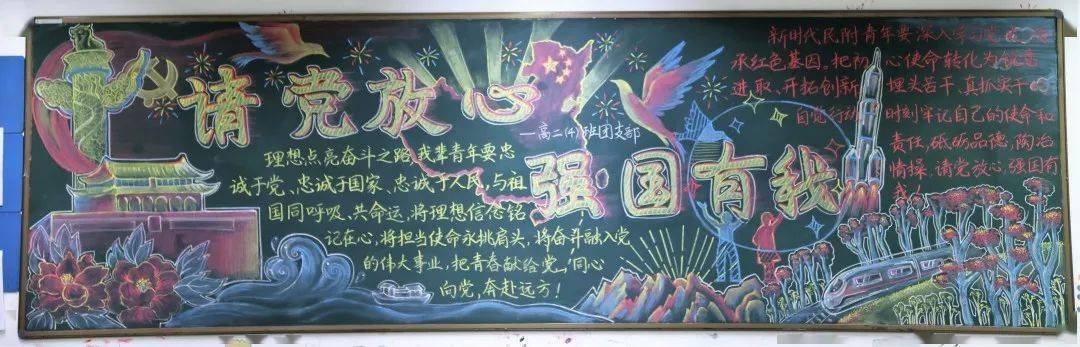 请党放心
强国有我
——高二(4)班团支部
理想点亮奋斗之路,我辈青年要忠
诚于党、忠诚于国家、忠诚于人民,与祖
国同呼吸、共命运,将理想信念铭
记在心,将担当使命永挑肩头,将奋斗融入党
的伟大事业,把青春献给党,同心
向党,奔赴远方!
新时代民附青年要深入学习党
承红色基因。把初心使命转化为锐意
进取、开拓创新 埋头苦干、真抓实干
自觉行动 时刻牢记自己的使命和
责任,砥砺品德,陶冶
情操。请党放心,强国有
我!